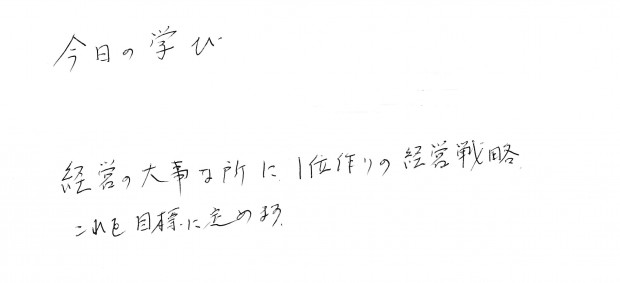 今日の学び
経営の大事な所に、1位作りの経営戦略、
これを目標に定めます。